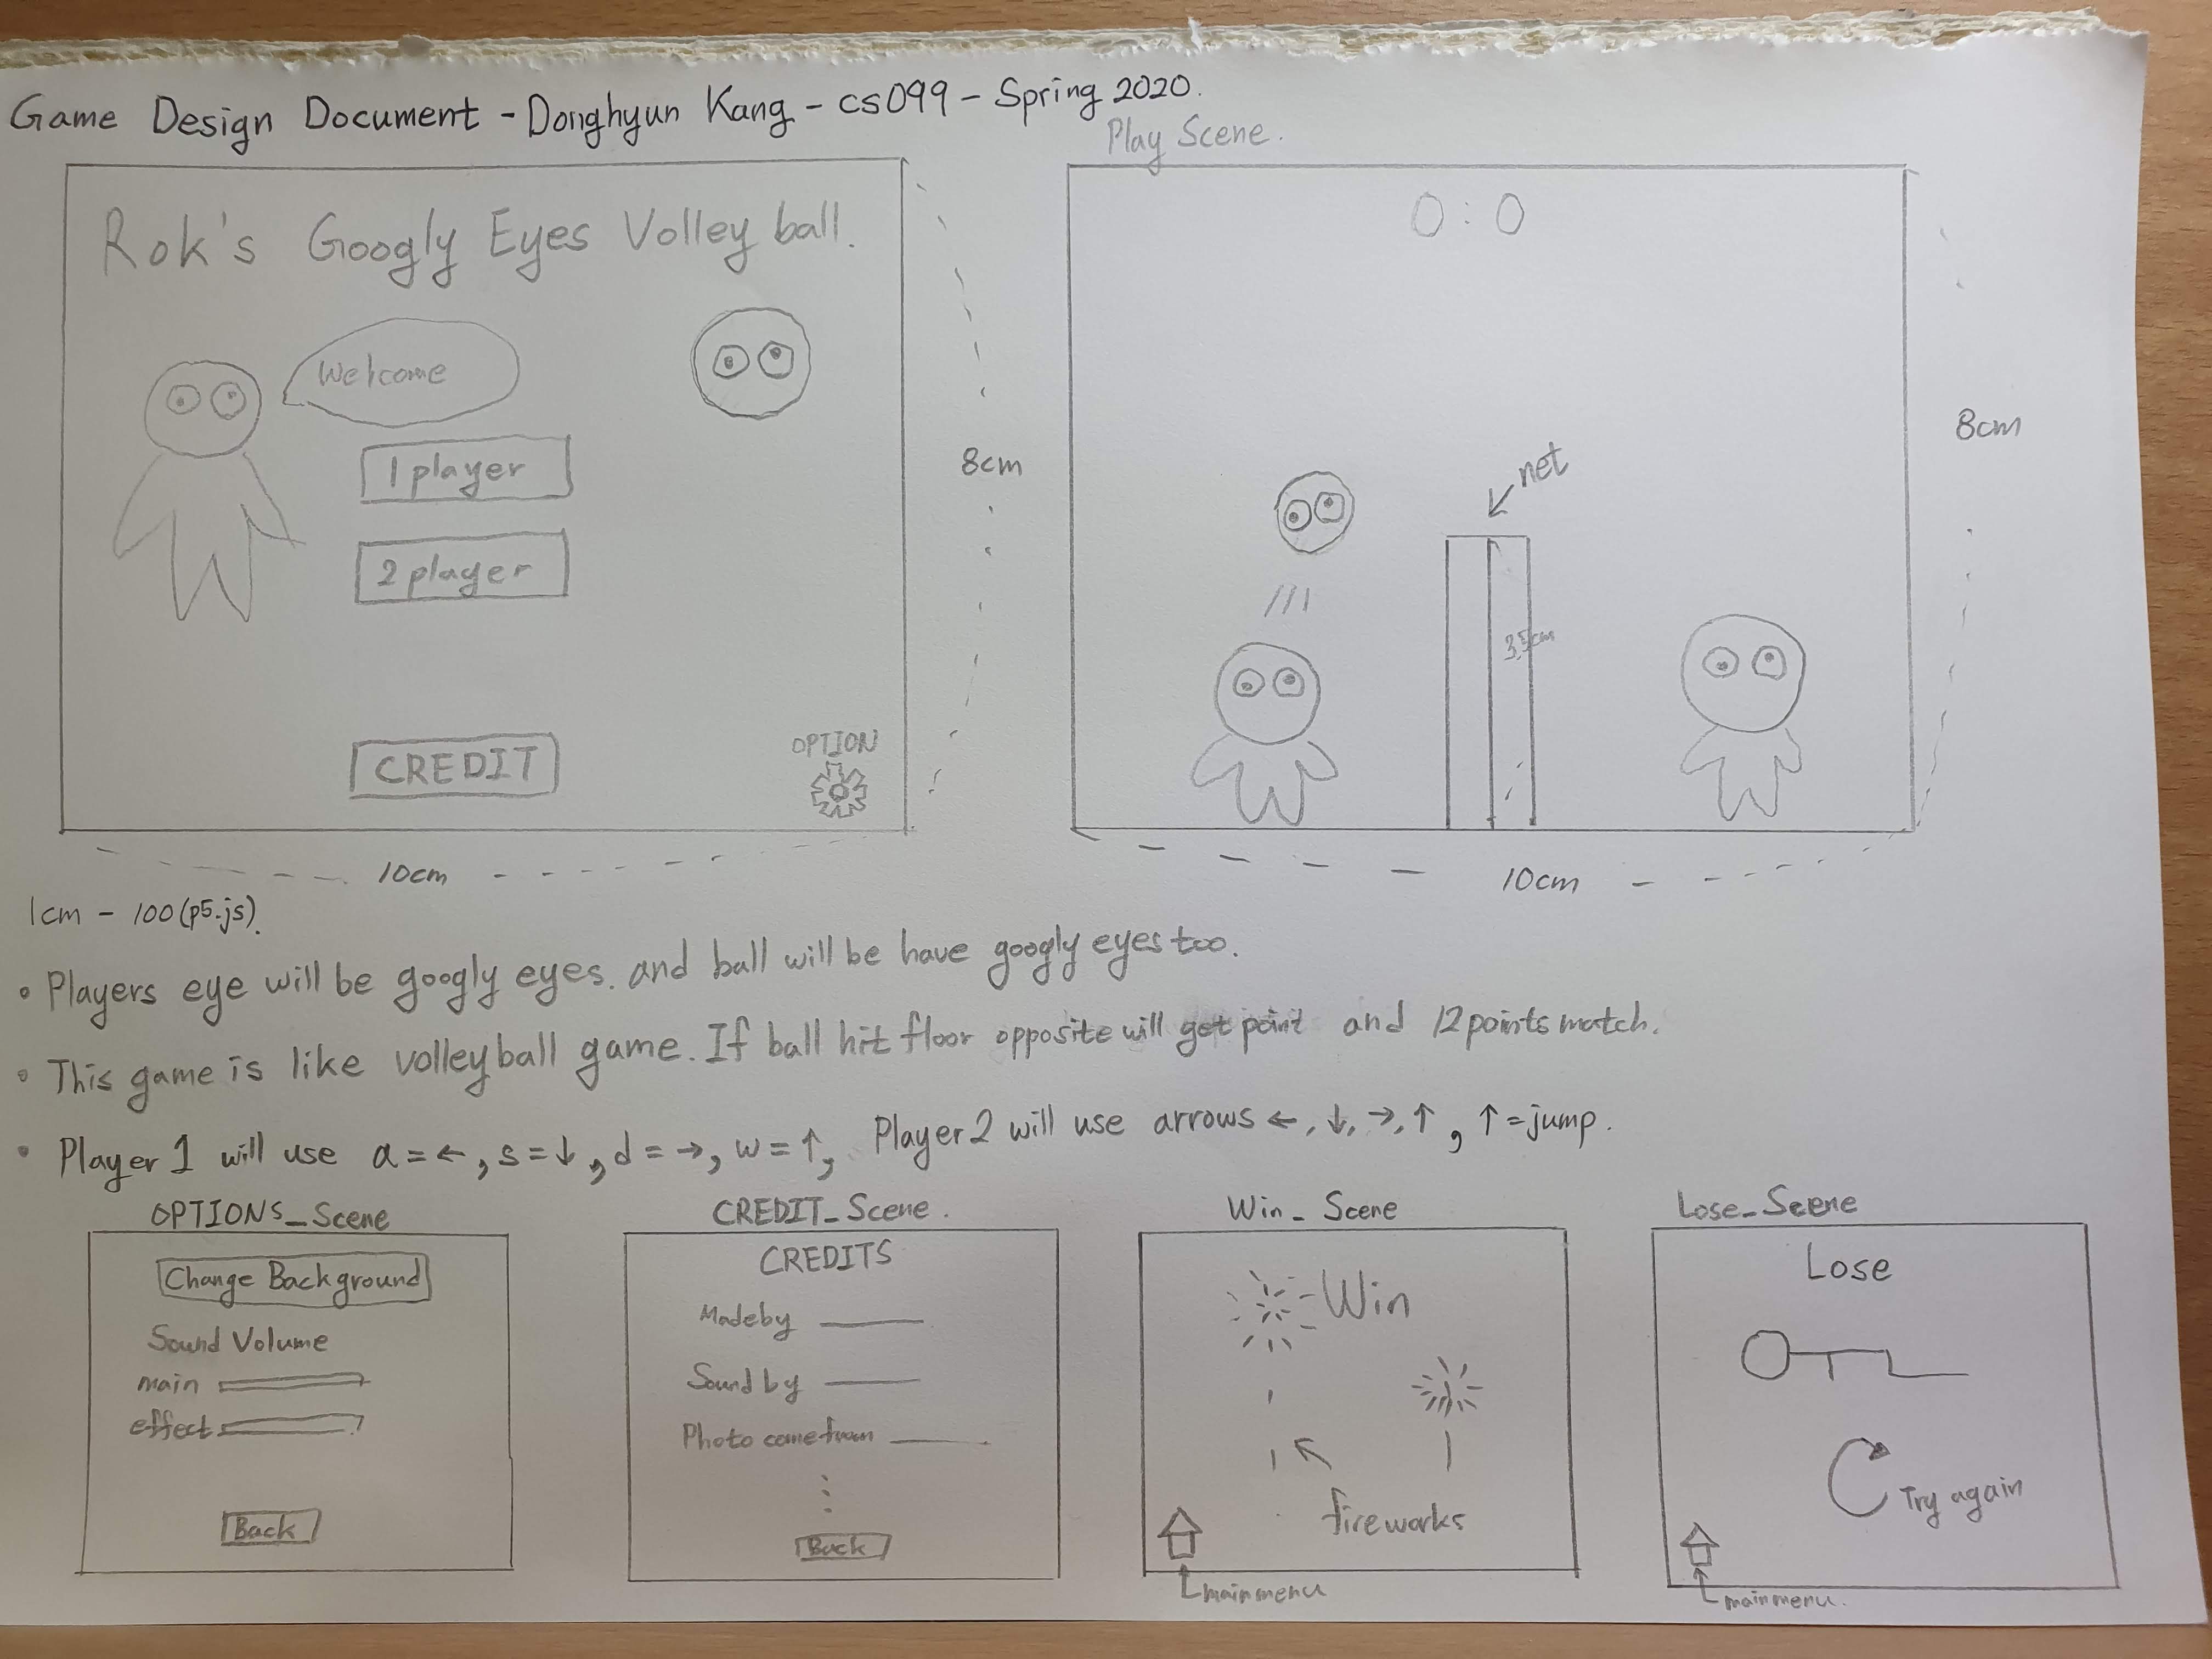 Game Design Document - Donghyun Kang - cs099 - Spring 2020.
Rok's Googly Eyes Volley ball.
Welcome
1 player
2 player
CREDIT
OPTION
8cm
10cm
Play Scene.
0 : 0
net
3.5cm
8cm
10cm
1cm - 100 (p5.js).
• Players eye will be googly eyes. and ball will be have googly eyes too.
• This game is like volleyball game. If ball hit floor opposite will get point and 12 points match.
• Player 1 will use a = ←, s = ↓, d = →, w = ↑, Player 2 will use arrows ←, ↓, →, ↑, ↑ = jump.
OPTIONS_Scene
Change Background
Sound Volume
main
effect
Back
CREDIT_Scene.
CREDITS
Made by
Sound by
Photo come from
Back
Win_Scene
Win
fireworks
main menu
Lose_Scene
Lose
Try again
main menu.